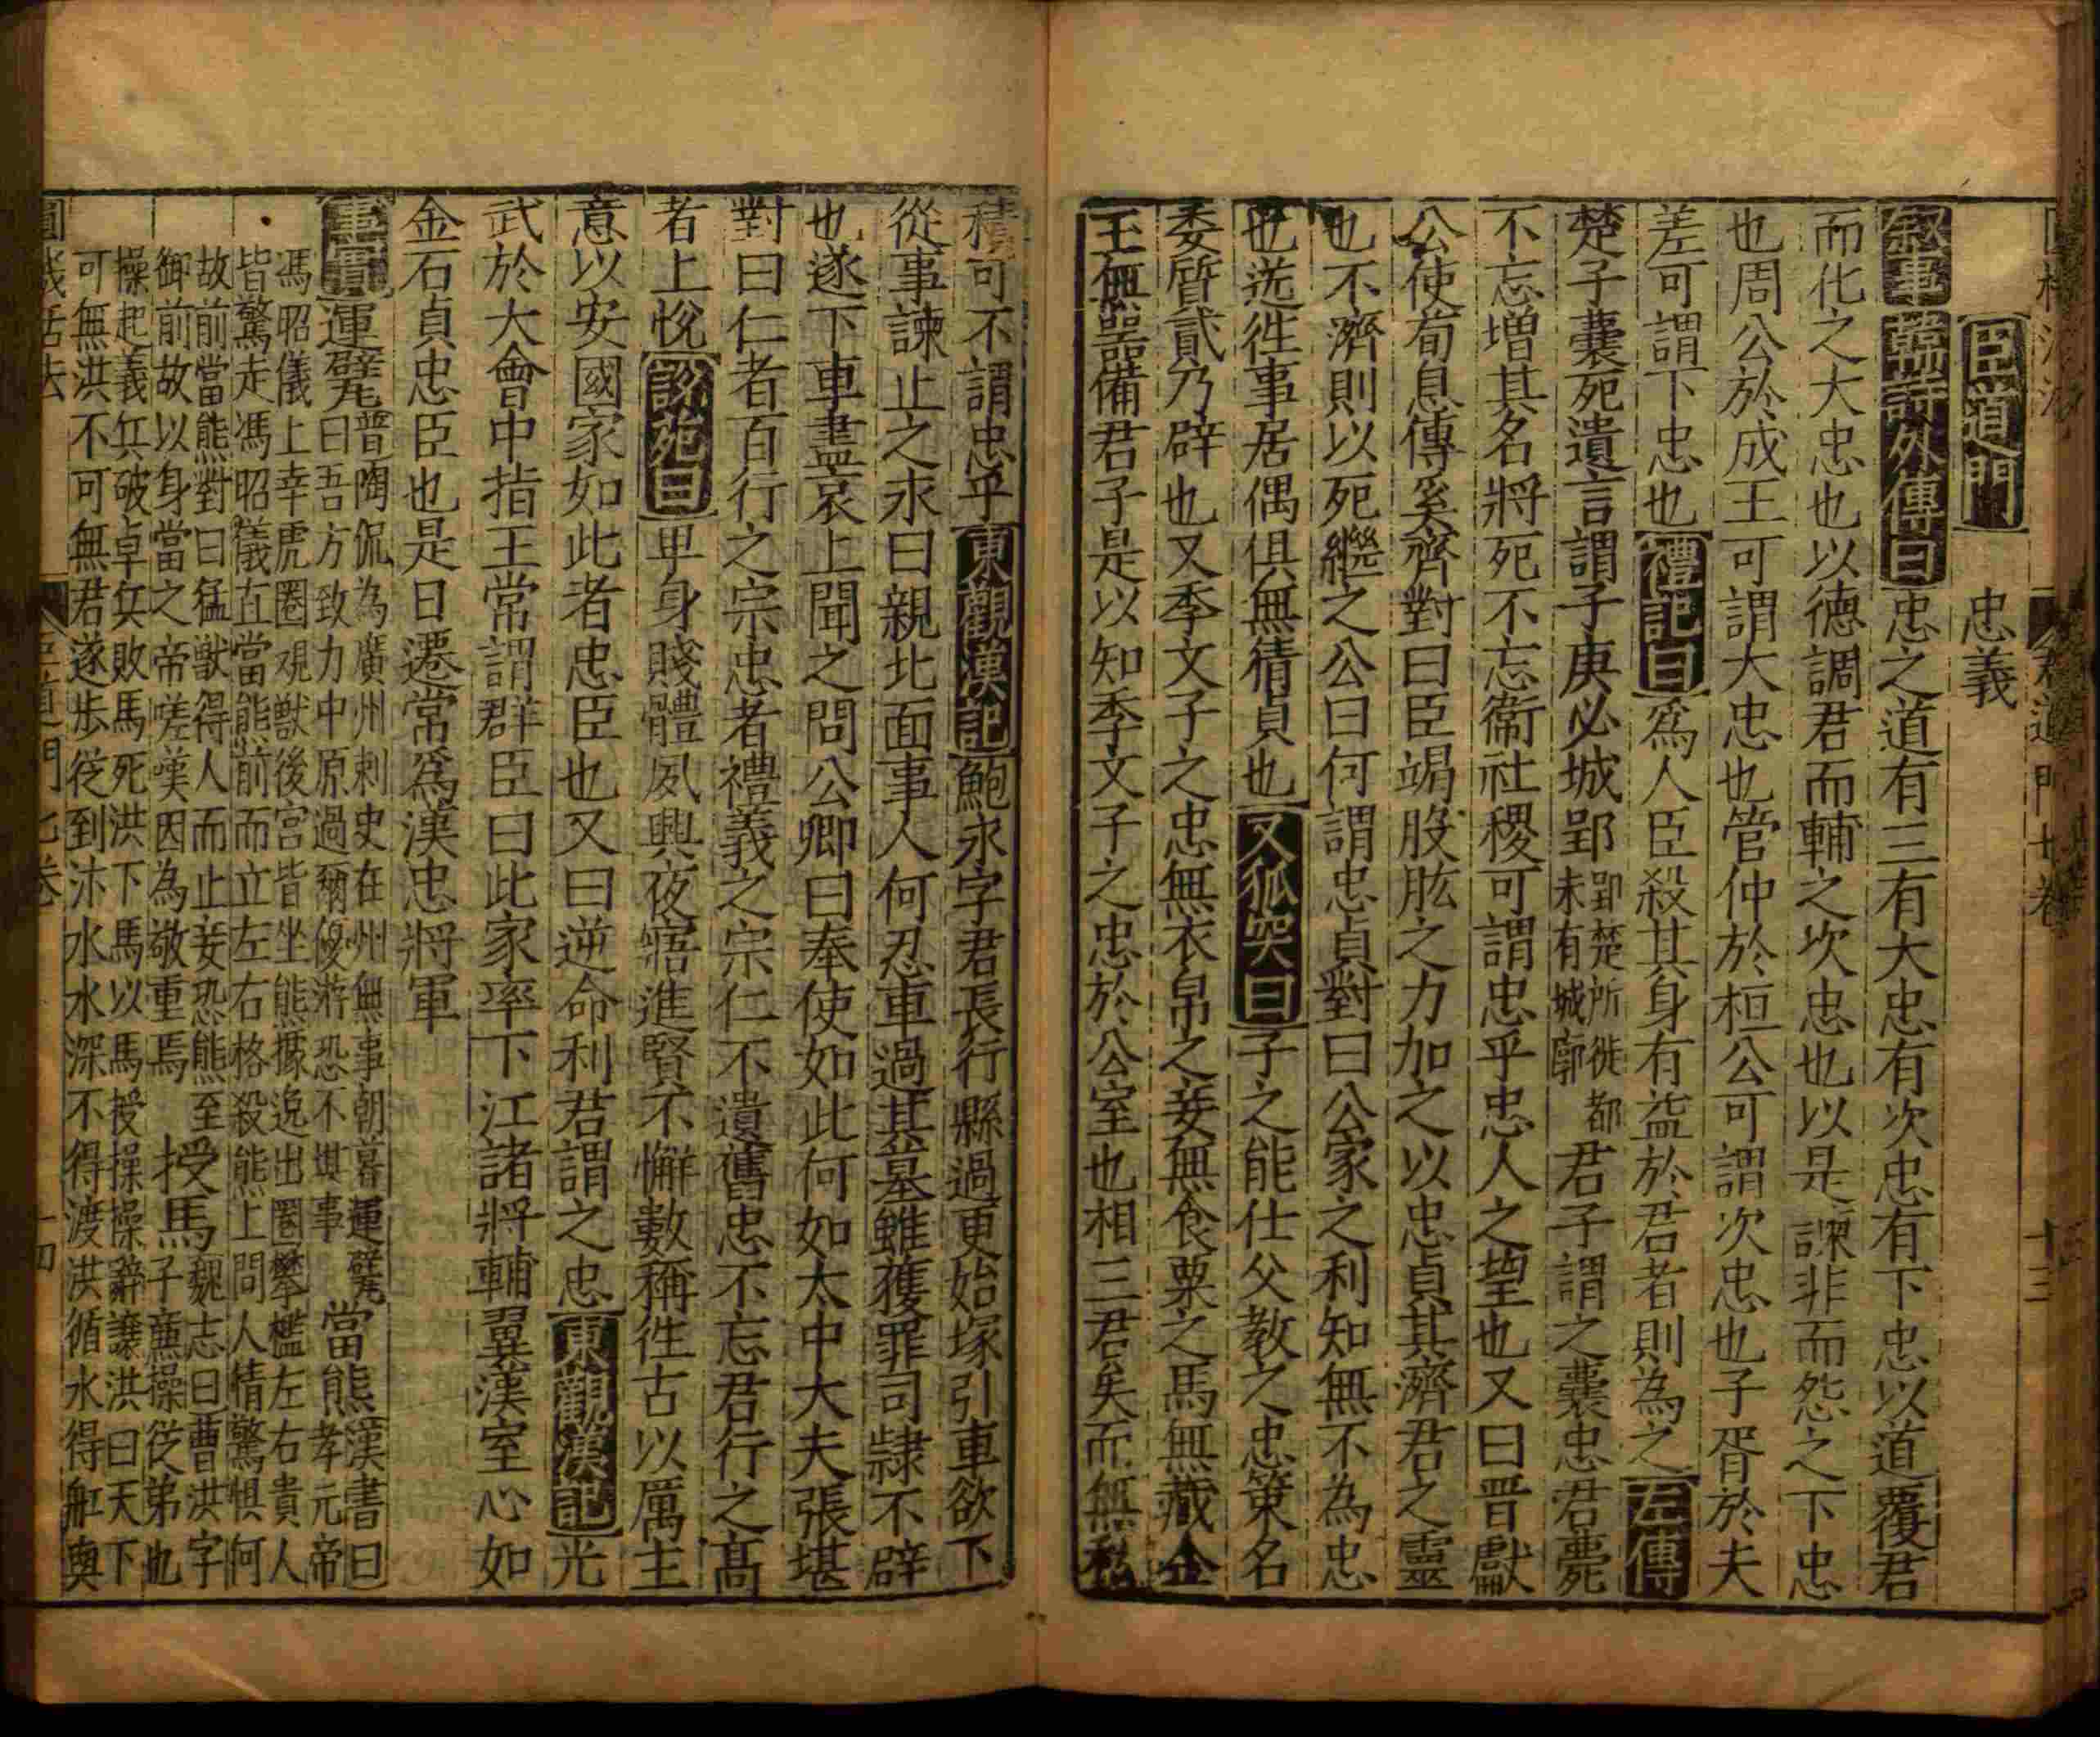 臣道門　忠義
叙事 韓詩外傳曰 忠之道有三有大忠有次忠有下忠以道覆君
而化之大忠也以德調君而輔之次忠也以是諫非而怨之下忠
也周公於成王可謂大忠也管仲於桓公可謂次忠也子胥於夫
差可謂下忠也 禮記曰 爲人臣殺其身有益於君者則為之 左傳
楚子囊死遺言謂子庚必城郢 郢楚所徙都未有城廓 君子謂之囊忠君薨
不忘增其名將死不忘衞社稷可謂忠乎忠人之望也又曰晋獻
公使荀息傳奚齊對曰臣竭股肱之力加之以忠貞其濟君之靈
也不濟則以死繼之公曰何謂忠貞對曰公家之利知無不為忠
也送徃事居偶俱無猜貞也 又狐突曰 子之能仕父教之忠策名
委質貳乃辟也又季文子之忠無衣帛之妾無食粟之馬無藏金
玉無噐備君子是以知季文子之忠於公室也相三君矣而無私
積可不謂忠乎 東觀漢記 鮑永字君長行縣過更始塚引車欲下
從事諫止之永曰親北面事人何忍車過其墓雖獲罪司隷不辟
也遂下車盡哀上聞之問公卿曰奉使如此何如太中大夫張堪
對曰仁者百行之宗忠者禮義之宗仁不遺舊忠不忘君行之髙
者上悅 説苑曰 卑身賤體夙興夜寤進賢不懈數稱徃古以厲主
意以安國家如此者忠臣也又曰逆命利君謂之忠 東觀漢記 光
武於大會中指王常謂群臣曰此家率下江諸將輔翼漢室心如
金石貞忠臣也是日遷常爲漢忠將軍
事實 運甓 晋陶侃為廣州刺史在州無事朝暮運甓
曰吾方致力中原過爾優游恐不堪事 當熊 漢書曰孝元帝
馮昭儀上幸虎圈覌獸後宮皆坐熊攄逸出圏攀檻左右貴人
皆驚走馮昭儀直當熊前而立左右格殺熊上問人情驚惧何
故前當熊對曰猛獸得人而止妾恐熊至
御前故以身當之帝嗟嘆因為敬重焉 授馬 魏志曰曹洪字子廉操從弟也
操起義兵破卓兵敗馬死洪下馬以馬授操操辭讓洪曰天下
可無洪不可無君遂步從到汴水水深不得渡洪循水得舡與